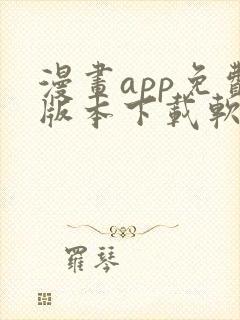 漫畫app免費
版本下載軟
羅琴